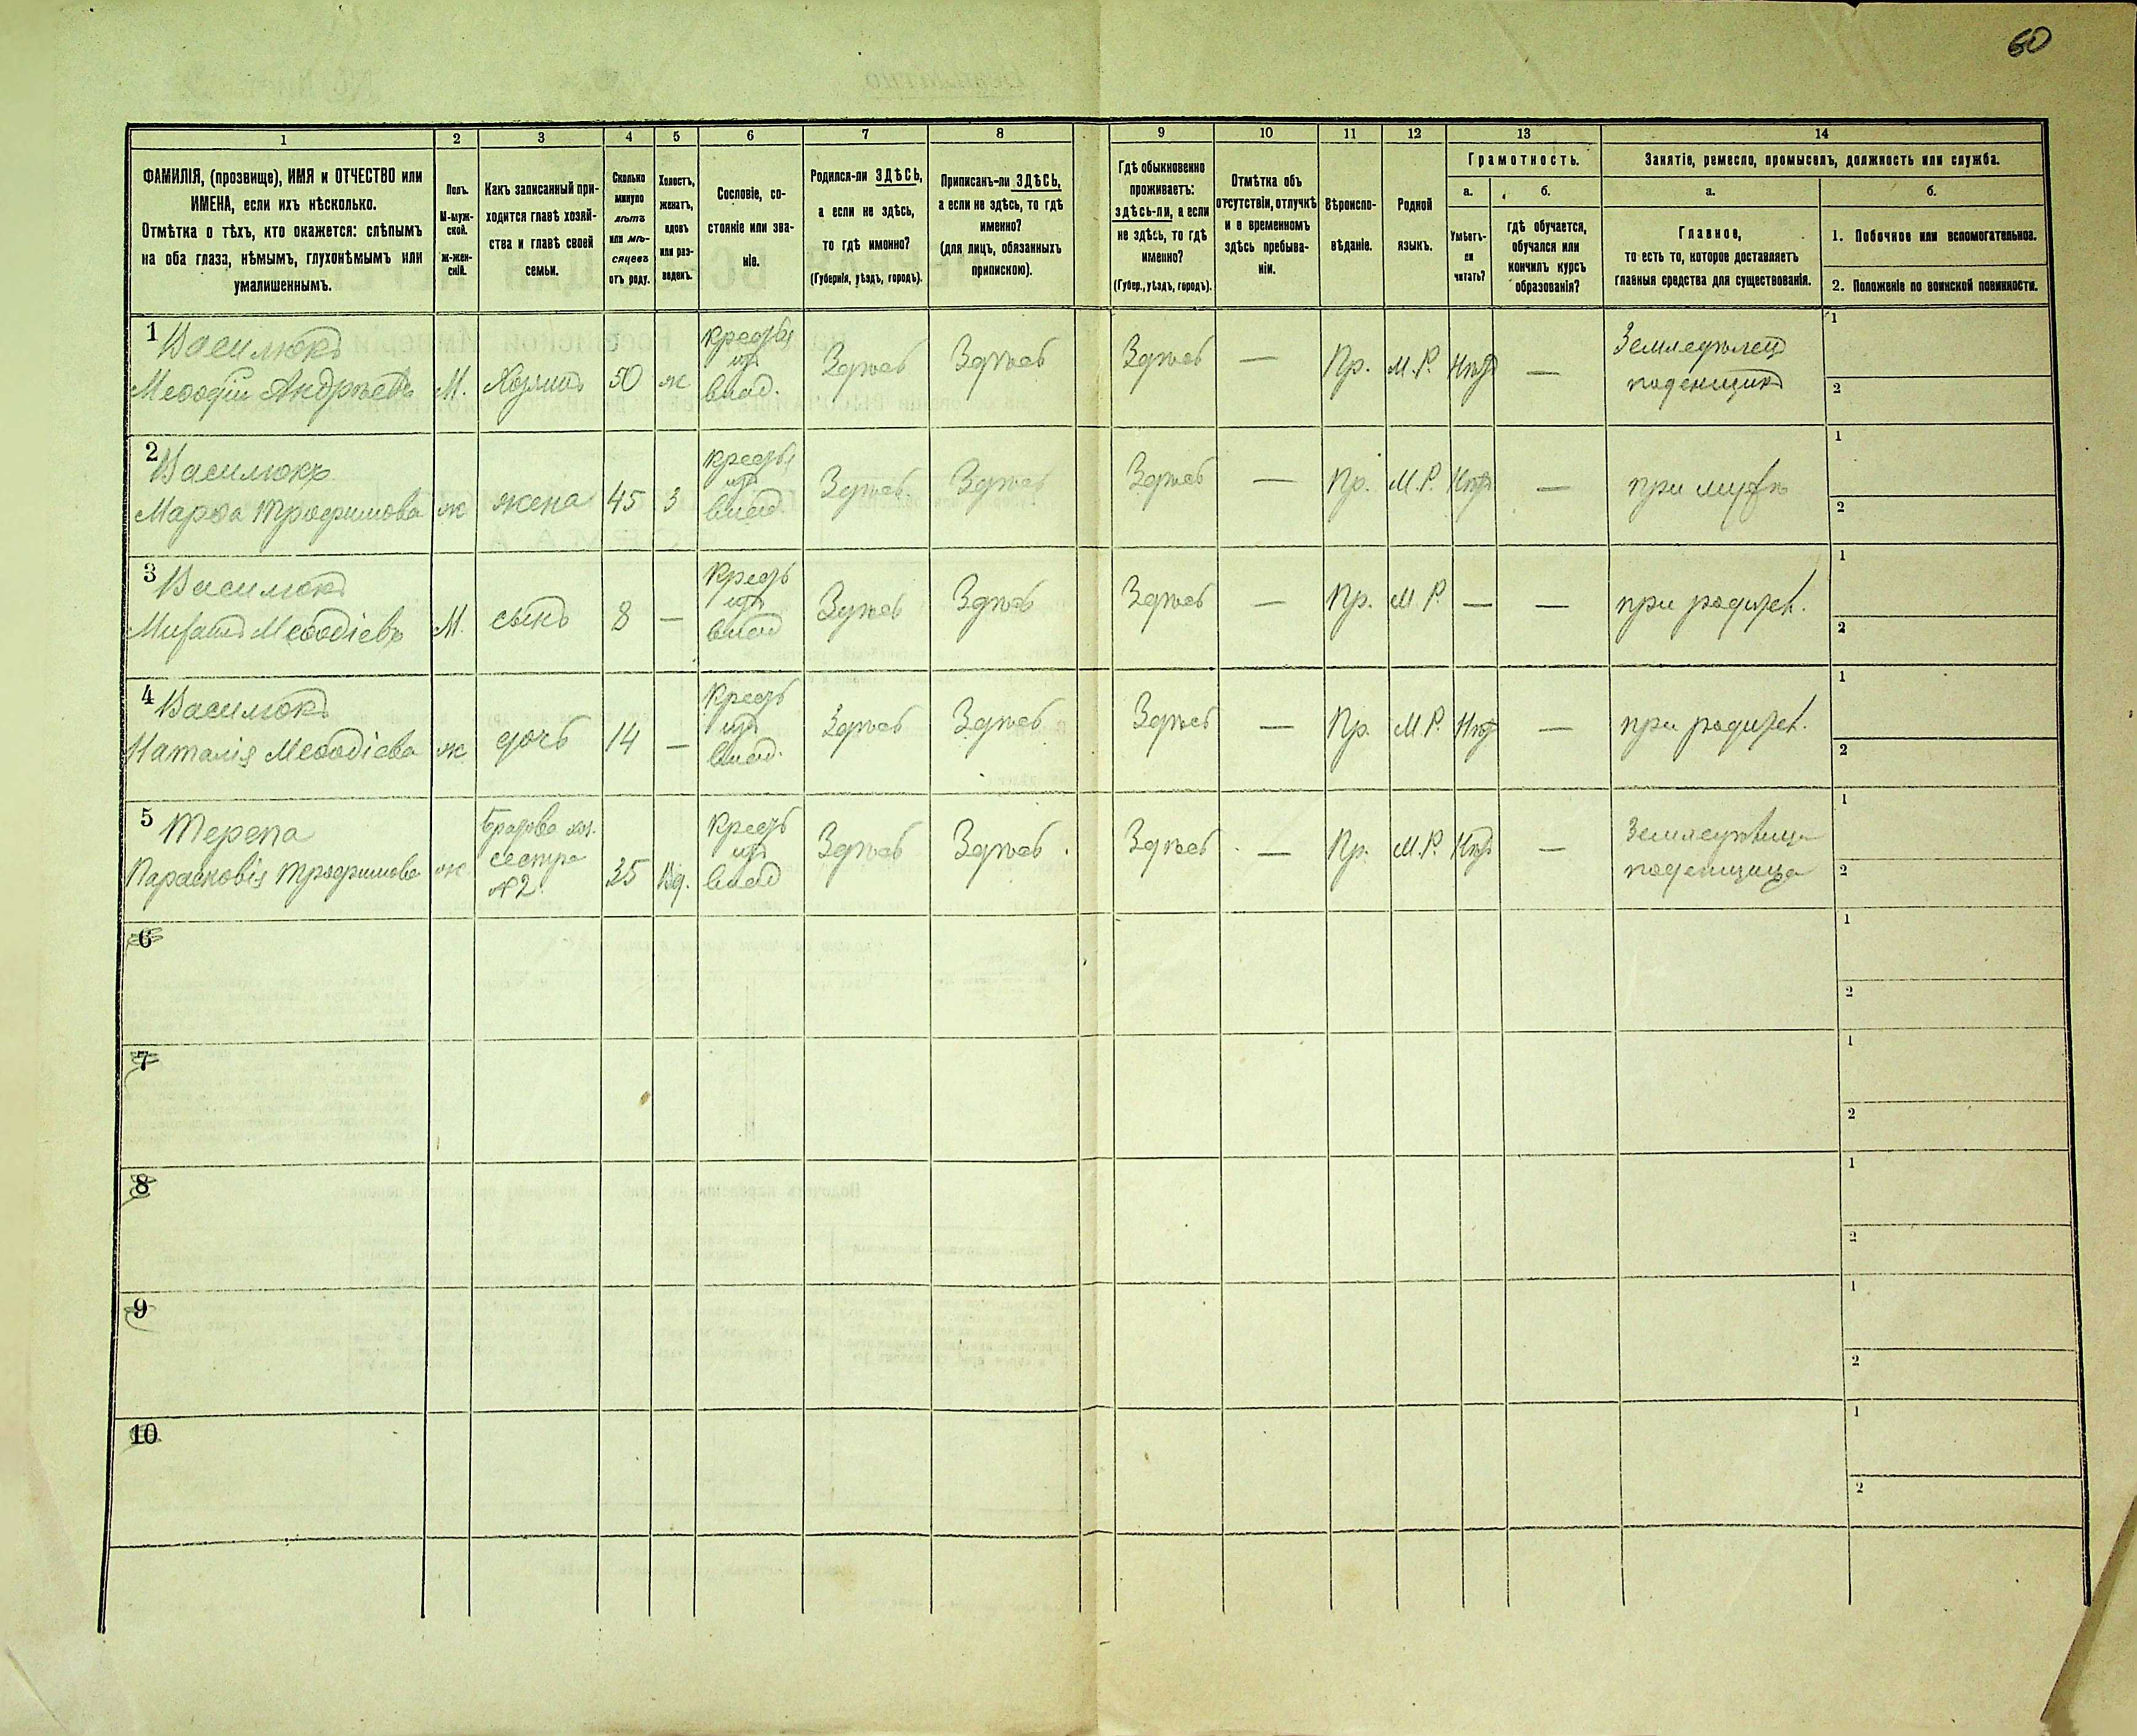 60
1 2 3 4 5 6 7 8 9 10 11 12 13 14
ФАМИЛІЯ, (прозвище), ИМЯ и ОТЧЕСТВО или
ИМЕНА, если ихъ нѣсколько.
Отмѣтка о тѣхъ, кто окажется: слѣпымъ
на оба глаза, нѣмымъ, глухонѣмымъ или
умалишеннымъ.
Полъ.
М-муж-
ской.
Ж-жен-
скій.
Какъ записанный при-
ходится главѣ хозяй-
ства и главѣ своей
семьи.
Сколько
минуло
лѣтъ
или мѣ-
сяцевъ
отъ роду.
Холостъ,
женатъ,
вдовъ
или раз-
веденъ.
Сословіе, со-
стояніе или зва-
ніе.
Родился-ли ЗДѢСЬ,
а если не здѣсь,
то гдѣ именно?
(Губернія, уѣздъ, городъ).
Приписанъ-ли ЗДѢСЬ,
а если не здѣсь, то гдѣ
именно?
(для лицъ, обязанныхъ
припискою).
Гдѣ обыкновенно
проживаетъ:
здѣсь-ли, а если
не здѣсь, то гдѣ
именно?
(Губер., уѣздъ, городъ).
Отмѣтка объ
отсутствіи, отлучкѣ
и о временномъ
здѣсь пребыва-
ніи.
Вѣроиспо-
вѣданіе.
Родной
языкъ.
Грамотность.
а.
Умѣетъ-
ли
читать?
б.
гдѣ обучается,
обучался или
кончилъ курсъ
образованія?
Занятіе, ремесло, промыселъ, должность или служба.
а.
Главное,
то есть то, которое доставляетъ
главныя средства для существованія.
б.
1. Побочное или вспомогательное.
2. Положеніе по воинской повинности.
1 Василюкъ
Меѳодій Андреевъ М. Хозяинъ 50 ж Крестья изъ влад. Здѣсь Здѣсь Здѣсь — Пр. М.Р. Нѣтъ — Земледѣлецъ поденщикъ 1 2
2 Василюкъ
Марѳа Трофимова ж жена 45 З Крестья изъ влад. Здѣсь Здѣсь Здѣсь — Пр. М.Р. Нѣтъ — при мужѣ 1 2
3 Василюкъ
Меѳодіевъ М. сынъ 8 — Кресть изъ влад Здѣсь Здѣсь Здѣсь — Пр. М.Р. — — при родител. 1 2
4 Василюкъ
Наталія Меѳодіева ж дочь 14 — Кресть изъ влад. Здѣсь Здѣсь Здѣсь — Пр. М.Р. Нѣтъ — при родител. 1 2
5 Терепа
Парасковія Трофимова ж сестра №2. 35 Вд. Кресть изъ влад Здѣсь Здѣсь Здѣсь — Пр. М.Р. Нѣтъ — поденщица 1 2
6 1 2
7 1 2
8 1 2
9 1 2
10 1 2